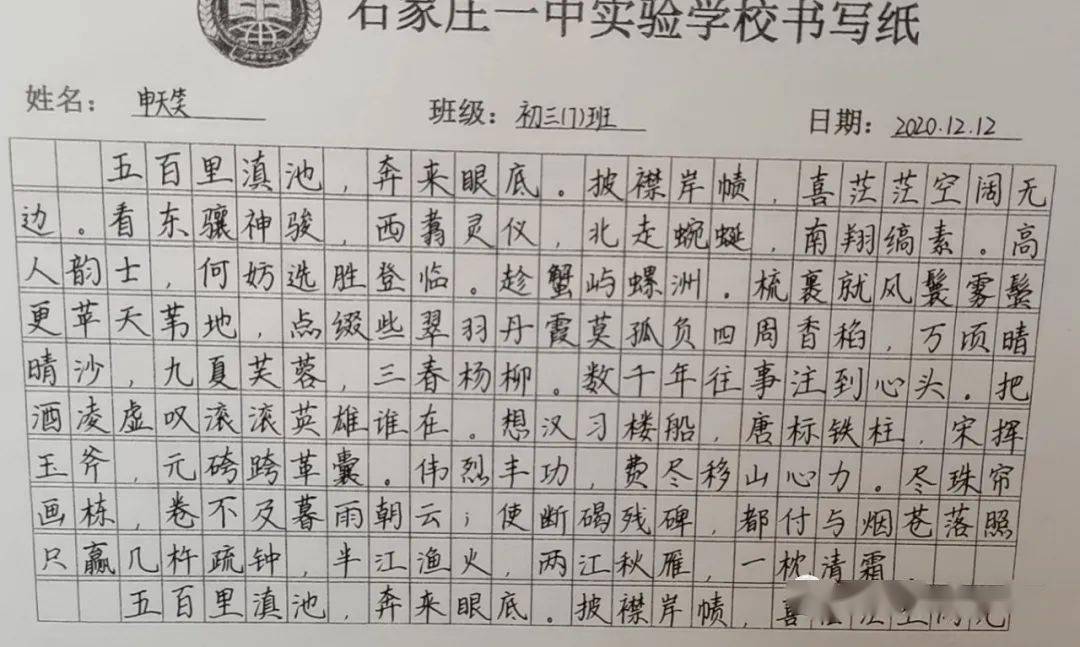 石家庄一中实验学校书写纸
姓名： 申天笑 班级： 初三(7)班 日期： 2020.12.12
五百里滇池，奔来眼底。披襟岸帻，喜茫茫空阔无
边。看东骧神骏，西翥灵仪，北走蜿蜒，南翔缟素。高
人韵士，何妨选胜登临。趁蟹屿螺洲。梳裹就风鬟雾鬓
更苹天苇地，点缀些翠羽丹霞莫孤负四周香稻，万顷晴
晴沙，九夏芙蓉，三春杨柳。数千年往事注到心头。把
酒凌虚叹滚滚英雄谁在。想汉习楼船，唐标铁柱，宋挥
玉斧，元硿跨革囊。伟烈丰功，费尽移山心力。尽珠帘
画栋，卷不及暮雨朝云；使断碣残碑，都付与烟苍落照
只赢几杵疏钟，半江渔火，两江秋雁，一枕清霜
五百里滇池，奔来眼底。披襟岸帻，喜